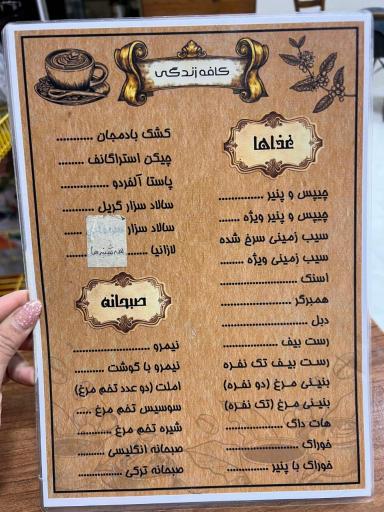 کافه زندگی
غذاها
چیپس و پنیر ..............
چیپس و پنیر ویژه .......
سیب زمینی سرخ شده
سیب زمینی ویژه ........
اسنک .........................
همبرگر ......................
دبل ...........................
رست بیف ..................
رست بیف تک نفره
بنینی مرغ (دو نفره)
بنینی مرغ (تک نفره)
هات داگ ..................
خوراک ......................
خوراک با پنیر ..............
کشک بادمجان ...........
چیکن استراگانف ........
پاستا آلفردو ...............
سالاد سزار گریل ..........
سالاد سزار
لازانیا ......
صبحانه
نیمرو ........................
نیمرو با گوشت ..........
املت (دو عدد تخم مرغ)
سوسیس تخم مرغ .....
شیره تخم مرغ ............
صبحانه انگلیسی ........
صبحانه ترکی .............